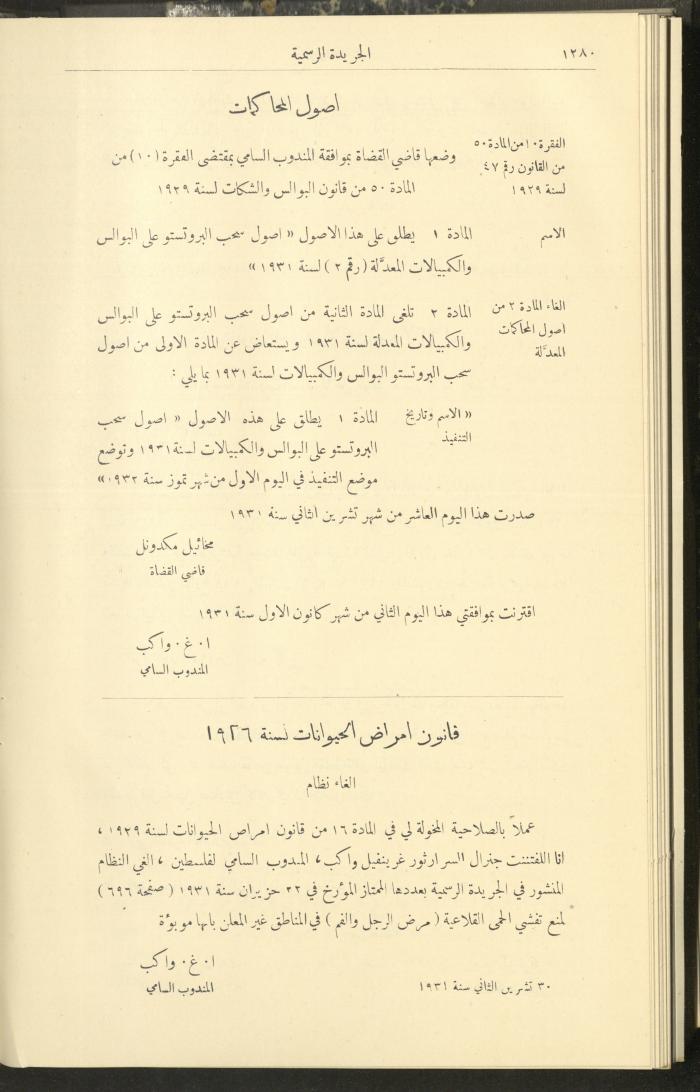 ١٢٨٠
الجريدة الرسمية
اصول المحاكمات
الفقرة ١٠ من المادة ٥٠
من القانون رقم ٤٧
لسنة ١٩٢٩
وضعها قاضي القضاة بموافقة المندوب السامي بمقتضى الفقرة (١٠) من
المادة ٥٠ من قانون البوالس والشكات لسنة ١٩٢٩
الاسم
المادة ١ يطلق على هذا الاصول « اصول سحب البروتستو على البوالس
والكمبيالات المعدَّلة (رقم ٢) لسنة ١٩٣١ »
الغاء المادة ٢ من
اصول المحاكمات
المعدَّلة
المادة ٢ تلغى المادة الثانية من اصول سحب البروتستو على البوالس
والكمبيالات المعدلة لسنة ١٩٣١ ويستعاض عن المادة الاولى من اصول
سحب البروتستو البوالس والكمبيالات لسنة ١٩٣١ بما يلي :
« الاسم وتاريخ
التنفيذ
المادة ١ يطلق على هذه الاصول « اصول سحب
البروتستو على البوالس والكمبيالات لسنة ١٩٣١ وتوضع
موضع التنفيذ في اليوم الاول من شهر تموز سنة ١٩٣٢ »
صدرت هذا اليوم العاشر من شهر تشرين الثاني سنة ١٩٣١
مخائيل مكدونل
قاضي القضاة
اقترنت بموافقتي هذا اليوم الثاني من شهر كانون الاول سنة ١٩٣١
ا٠ غ٠ واكب
المندوب السامي
قانون امراض الحيوانات لسنة ١٩٢٦
الغاء نظام
عملاً بالصلاحية المخولة لي في المادة ١٦ من قانون امراض الحيوانات لسنة ١٩٢٩ ،
انا اللفتننت جنرال السر ارثور غرينفيل واكب ، المندوب السامي لفلسطين ، الغي النظام
المنشور في الجريدة الرسمية بعددها الممتاز المؤرخ في ٢٢ حزيران سنة ١٩٣١ ( صفحة ٦٩٦ )
لمنع تفشي الحمى القلاعية ( مرض الرجل والفم ) في المناطق غير المعلن بانها موبوءة
ا٠ غ٠ واكب
المندوب السامي
٣٠ تشرين الثاني سنة ١٩٣١